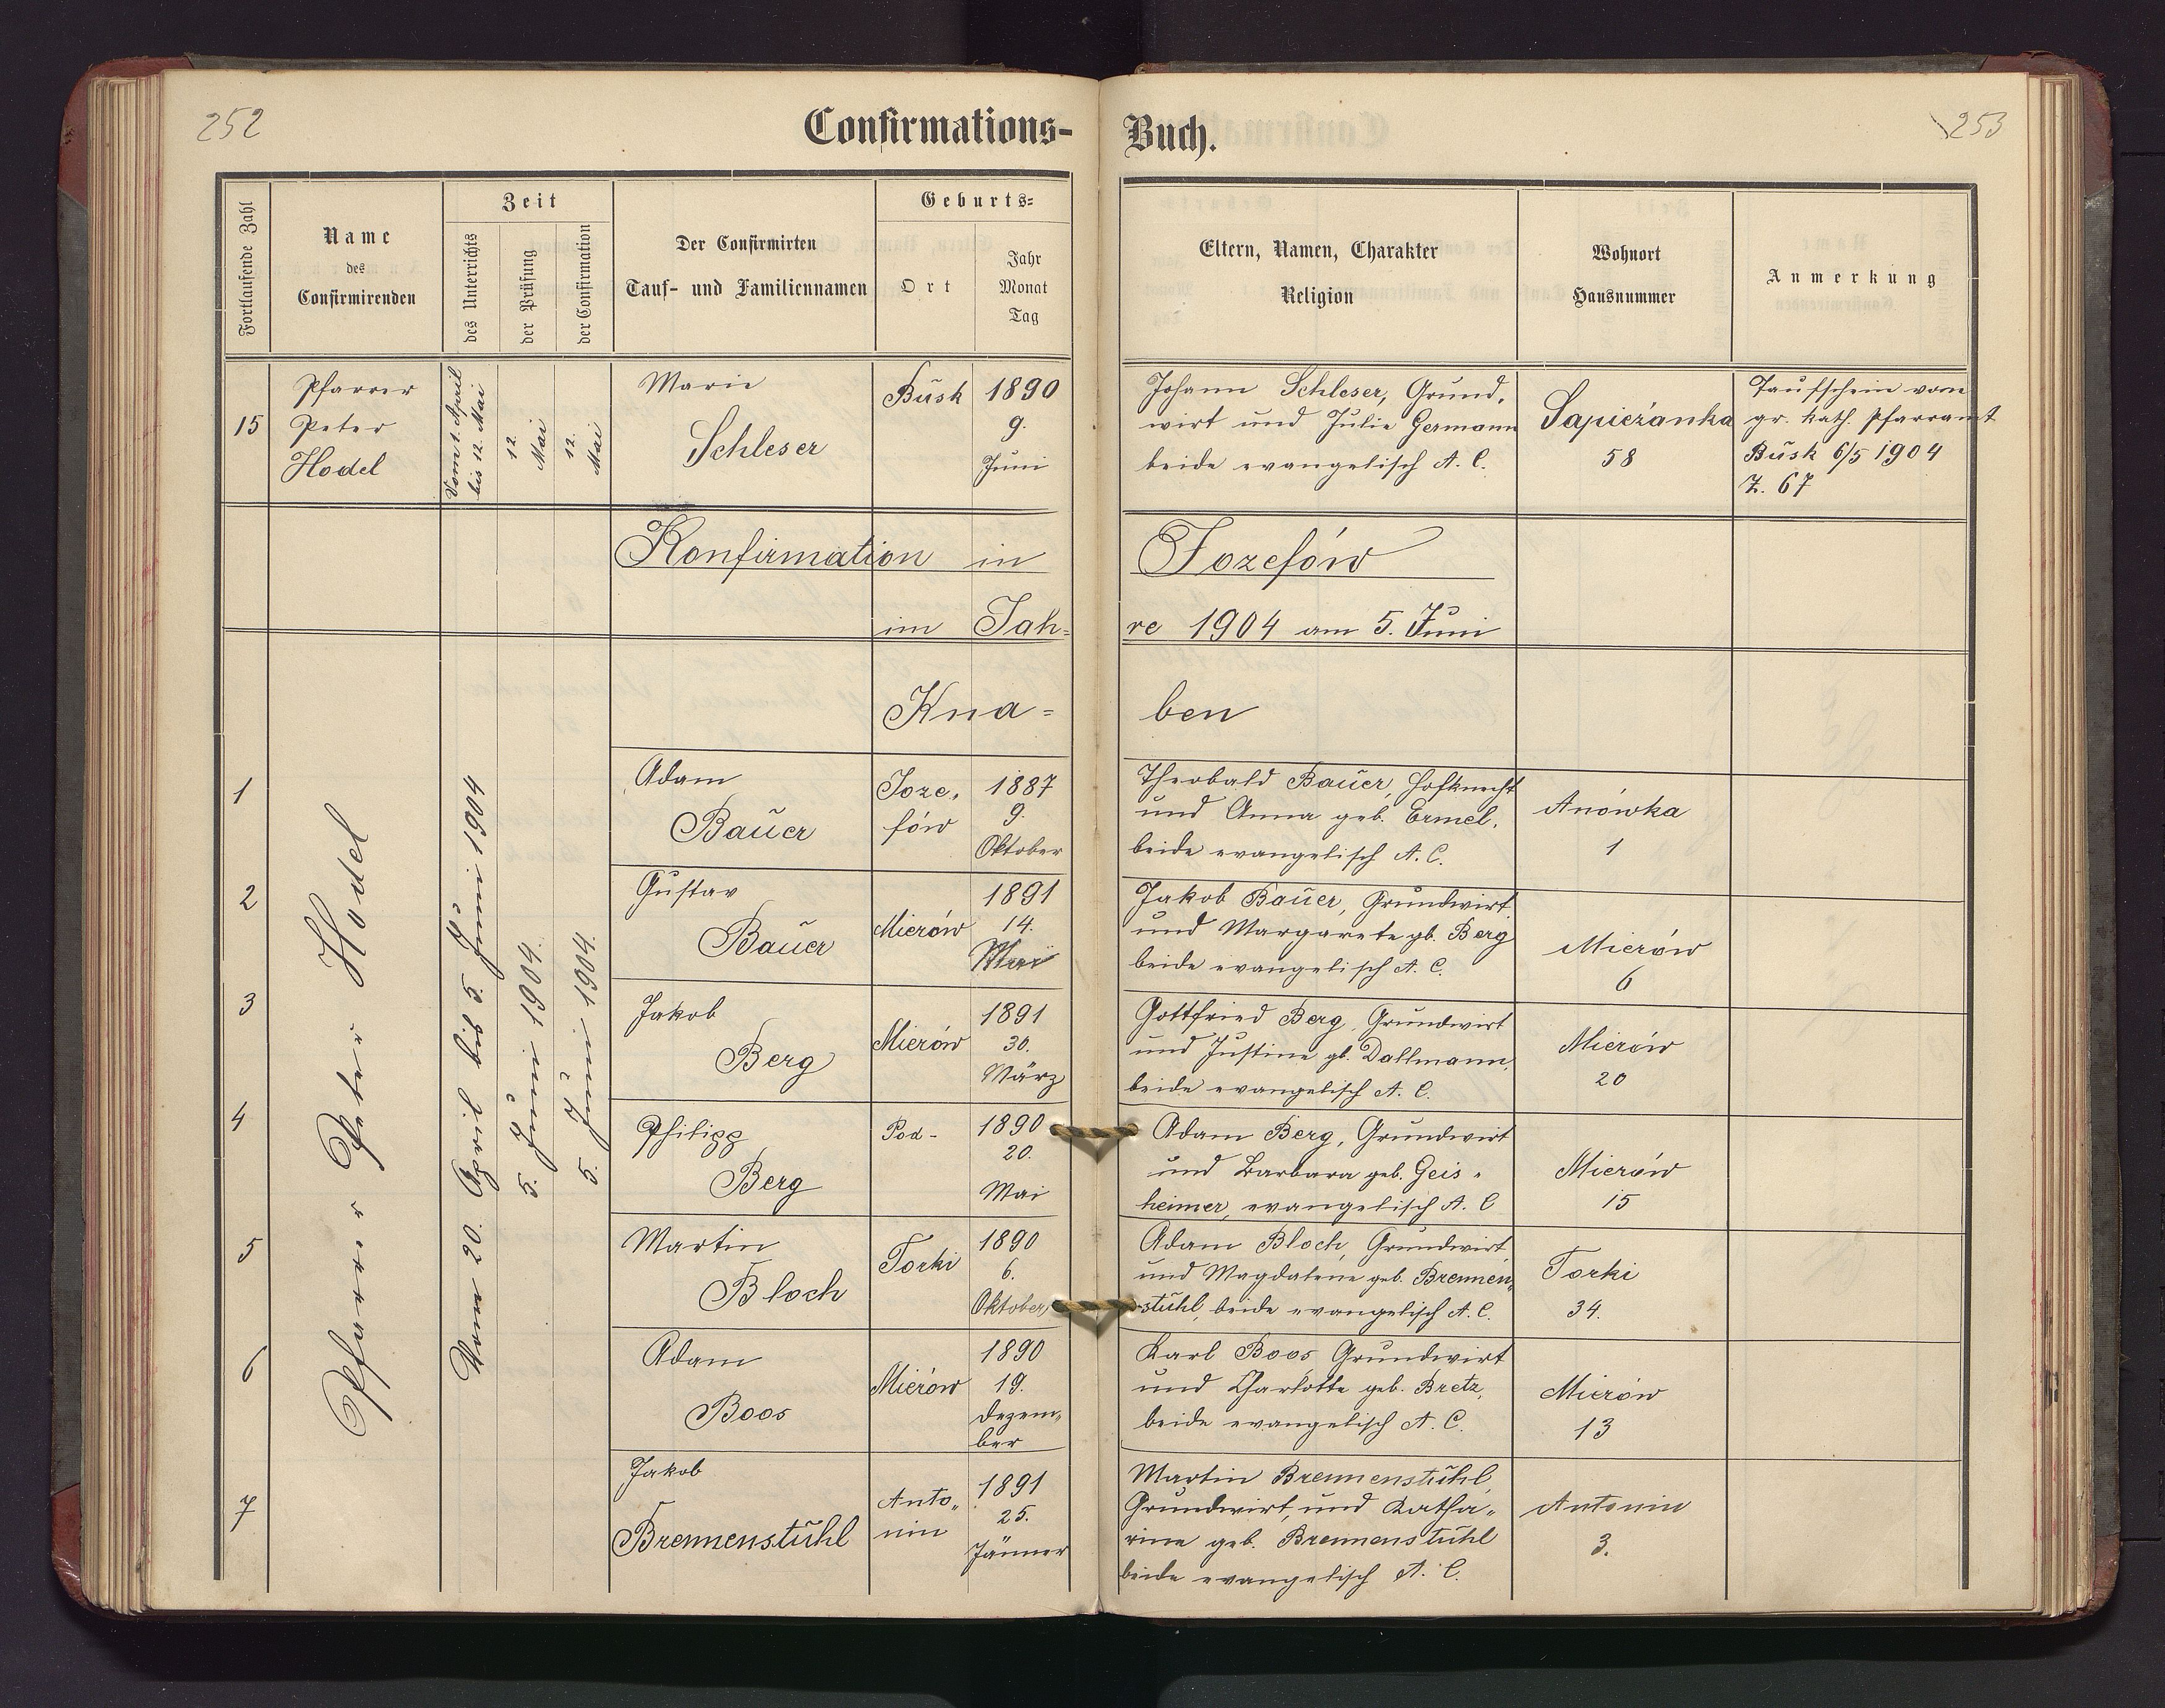 252
Confirmations-
Buch.
253
Fortlaufende Zahl
Name
des
Confirmirenden
Zeit
des Unterrichts
der Prüfung
der Confirmation
Der Confirmirten
Tauf- und Familiennamen
Geburts=
Ort
Jahr
Monat
Tag
Eltern, Namen, Charakter
Religion
Wohnort
Hausnummer
Anmerkung
15
Pfarrer
Peter
Hodel
Vom 1. April
bis 12. Mai
12.
Mai
12.
Mai
Marie
Schleser
Busk
1890
9.
Juni
Johann Schleser, Grund,
wirt und Julie Germann
beide evangelisch A. C.
Sapieżanka
58
Taufschein vom
gr. kath. Pfarramt
Busk 6/5 1904
Z. 67
Konfirmation in
Jozefów
im Jah=
re 1904 am 5. Juni
Kna=
ben
Pfarrer Peter Hodel
Vom 20. April bis 5. Juni 1904
5. Juni 1904.
5. Juni 1904.
1
Adam
Bauer
Joze,
fów
1887
9.
Oktober
Theobald Bauer, Hofknecht
und Anna geb. Ermel,
beide evangelisch A. C.
Anówka
1
2
Gustav
Bauer
Mierów
1891
14.
Mai
Jakob Bauer, Grundwirt,
und Margarete gb. Berg
beide evangelisch A. C.
Mierów
6
3
Jakob
Berg
Mierów
1891
30.
März
Gottfried Berg, Grundwirt
und Justine gb. Dallmann,
beide evangelisch A. C.
Mierów
20
4
Philipp
Berg
Pod-
1890
20.
Mai
Adam Berg, Grundwirt
und Barbara geb. Geis=
heimer, evangelisch A. C
Mierów
15
5
Martin
Bloch
Torki
1890
6.
Oktober
Adam Bloch, Grundwirt,
und Magdalene geb. Brennen,,
stuhl, beide evangelisch A. C.
Torki
34.
6
Adam
Boos
Mierów
1890
19.
Dezem,,
ber
Karl Boos Grundwirt
und Charlotte geb. Bretz,
beide evangelisch A. C.
Mierów
13
7
Jakob
Brennenstuhl
Anto,,
nin
1891
25.
Jänner
Martin Brennenstuhl,
Grundwirt, und Katha,,
rine geb. Brennenstuhl
beide evangelisch A. C.
Antonin
3.